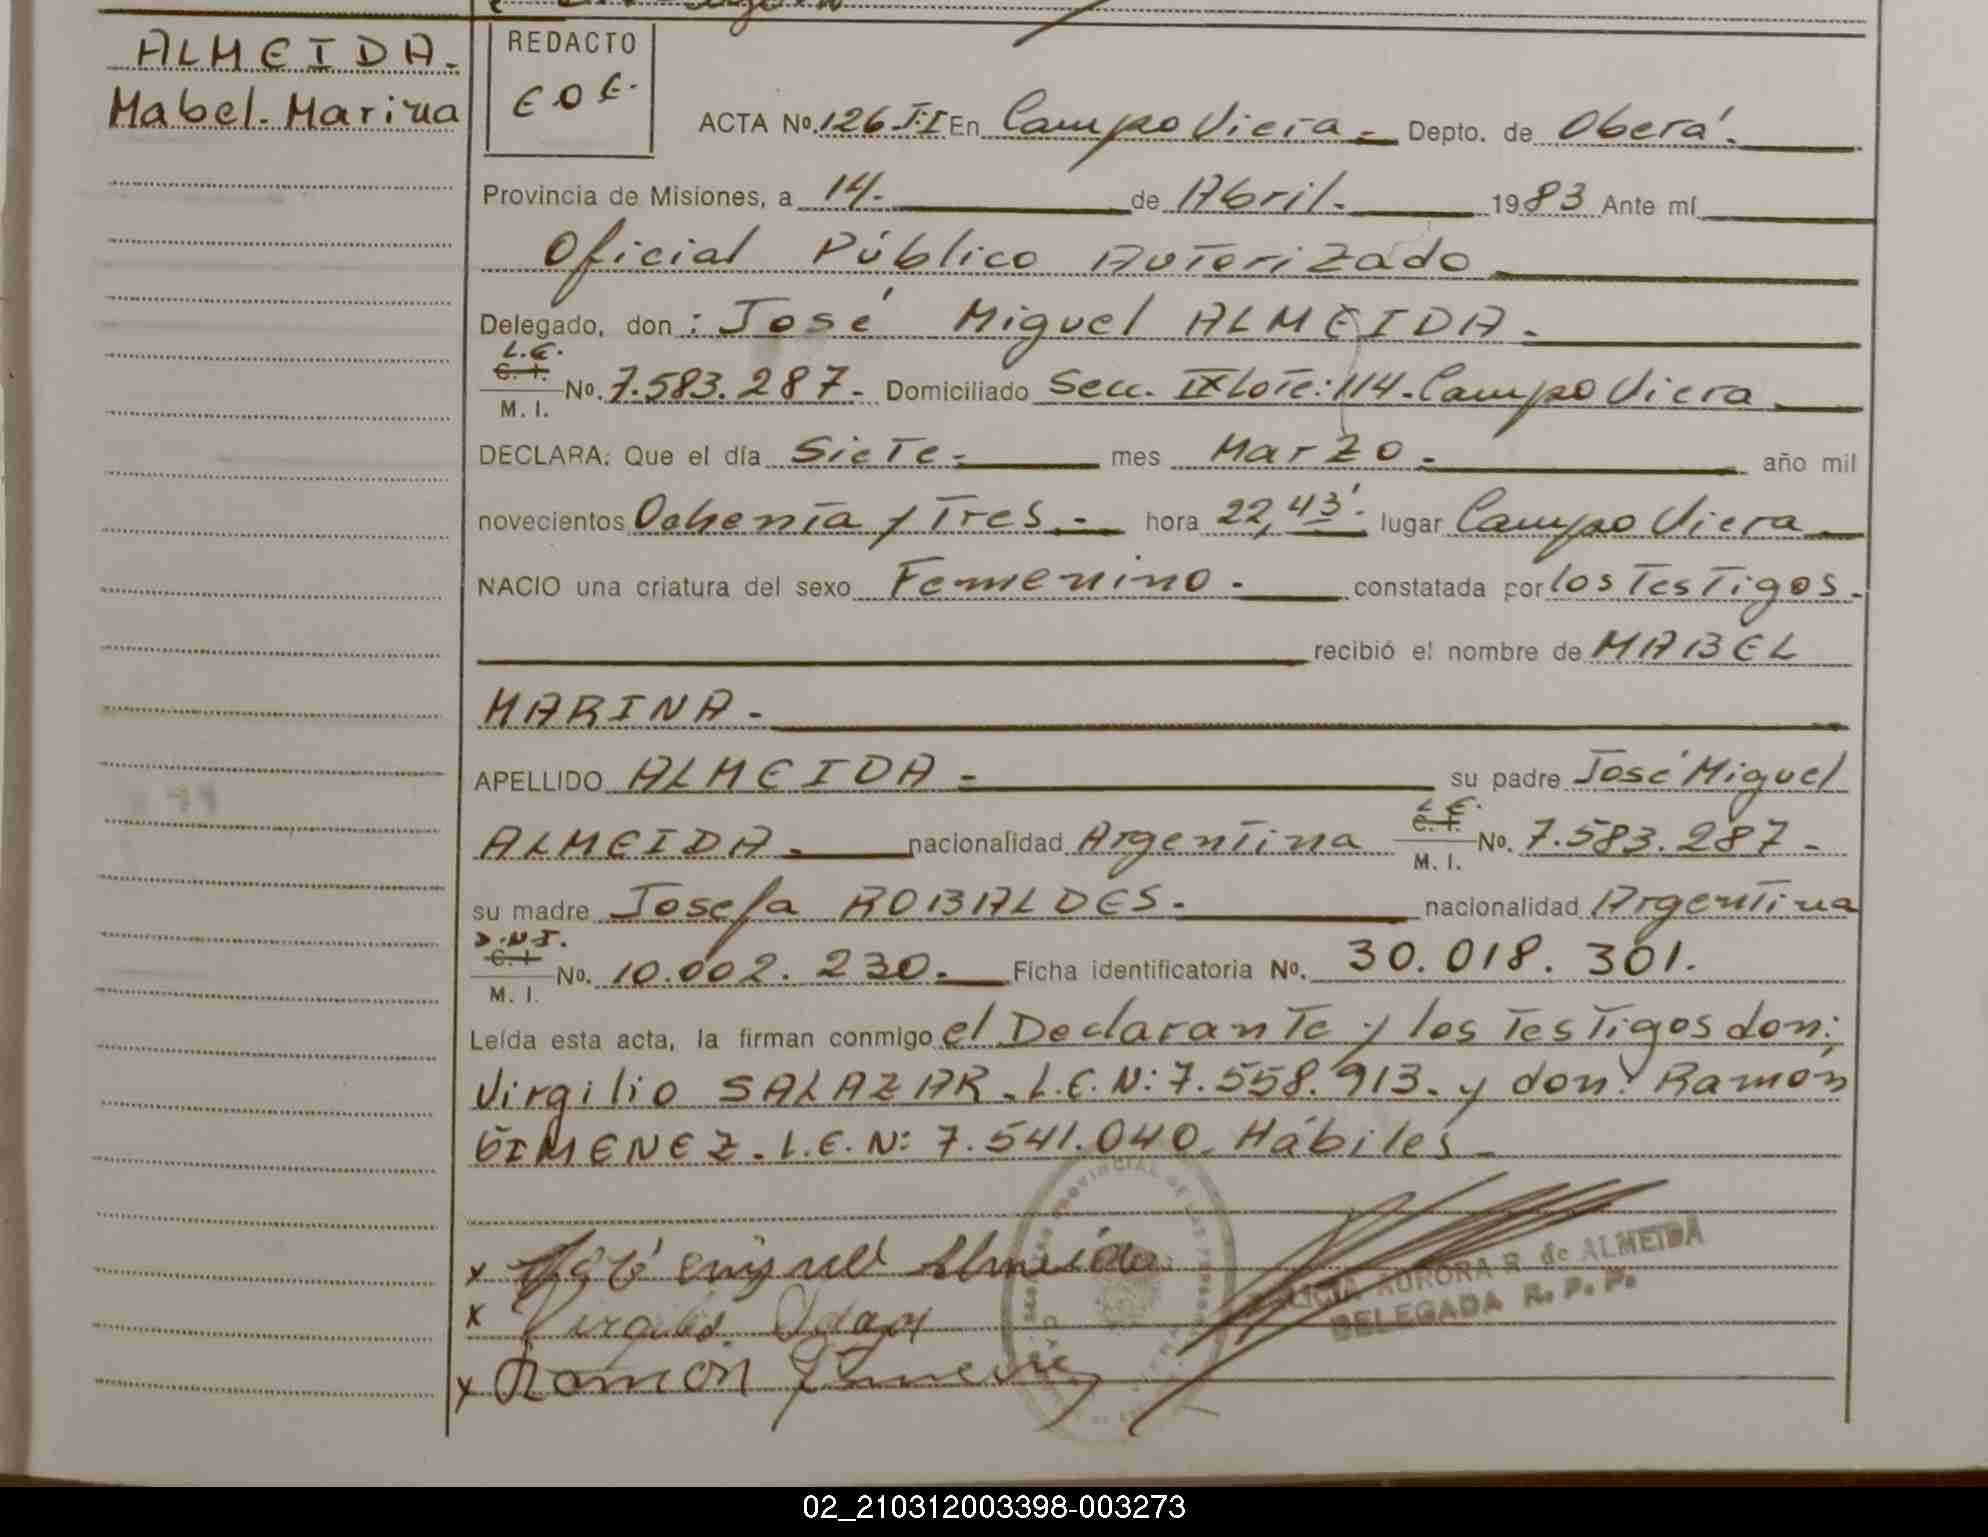 ALMEIDA.
Mabel. Marina
REDACTO
E O E.
ACTA No. 126 T:I En Campo Viera - Depto. de Oberá.
Provincia de Misiones, a 14. de Abril. 1983 Ante mí
Oficial Público Autorizado
Delegado, don : José Miguel ALMEIDA.
L.E.
C. I.
M. I.
No. 7.583.287. Domiciliado Secc. IX Lote: 114. Campo Viera
DECLARA: Que el día Siete. mes Marzo. año mil
novecientos Ochenta y Tres. hora 22,43'. lugar Campo Viera
NACIO una criatura del sexo Femenino. constatada por los Testigos.
recibió el nombre de MABEL
MARINA.
APELLIDO ALMEIDA. su padre José Miguel
L.E.
ALMEIDA. nacionalidad Argentina C. I. No. 7.583.287.
M. I.
su madre Josefa ROBALDES. nacionalidad Argentina
D.N.I.
C. I.
M. I.
No. 10.002.230. Ficha identificatoria No. 30.018.301.
Leída esta acta, la firman conmigo el Declarante y los Testigos don:
Virgilio SALAZAR. L.E. N: 7.558.913. y don: Ramón
GIMENEZ. L.E. N: 7.541.040. Hábiles.
x José Miguel Almeida
x Virgilio
x Ramón
AURORA R. de ALMEIDA
DELEGADA R. P. P.
02_210312003398-003273